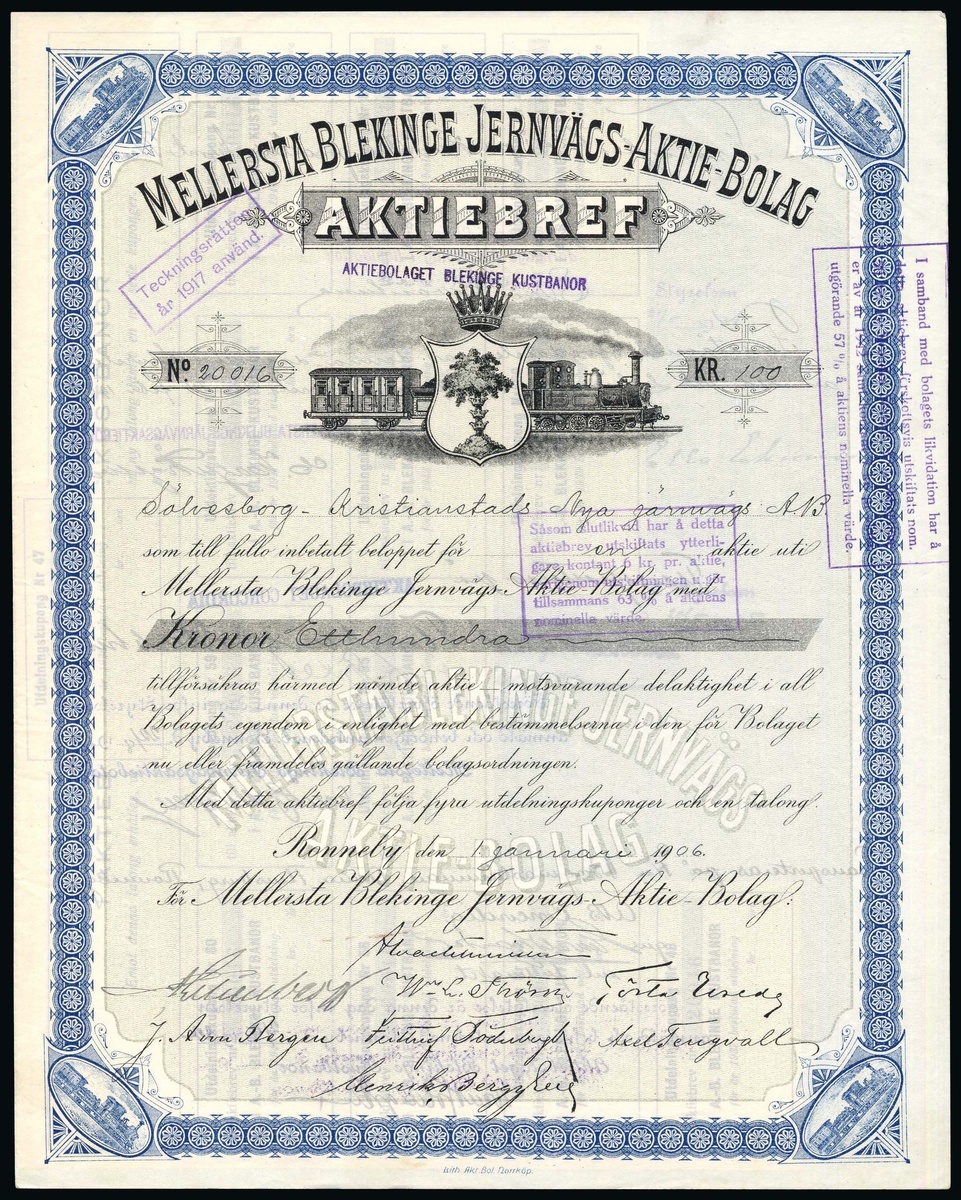 MELLERSTA BLEKINGE JERNVÄGS-AKTIE-BOLAG
AKTIEBREF
Teckningsrätten
år 1917 använd.
AKTIEBOLAGET BLEKINGE KUSTBANOR
Nº 20916
KR. 100
I samband med bolagets likvidation har å
detta aktiebrev förskottsvis utskiftats nom.
er av år 1912
utgörande 57 % å aktiens nominella värde.
Sölvesborg - Kristianstads Nya järnvägs AB
som till fullo inbetalt beloppet för en aktie uti
Mellersta Blekinge Jernvägs-Aktie-Bolag med
Kronor Etthundra
Såsom slutlikvid har å detta
aktiebrev utskiftats ytterli-
gare kontant 6 kr. pr. aktie,
varigenom utskiftningen u.gör
tillsammans 63 % å aktiens
nominella värde.
tillförsäkras härmed nämde aktie motsvarande delaktighet i all
Bolagets egendom i enlighet med bestämmelserna i den för Bolaget
nu eller framdeles gällande bolagsordningen.
Med detta aktiebref följa fyra utdelningskuponger och en talong.
MELLERSTA BLEKINGE JERNVÄGS
AKTIE-BOLAG
Ronneby den 1 januari 1906.
För Mellersta Blekinge Jernvägs-Aktie-Bolag:
J. A von Bergen
Axel Tengvall
Lith. Akt. Bol. Norrköp.